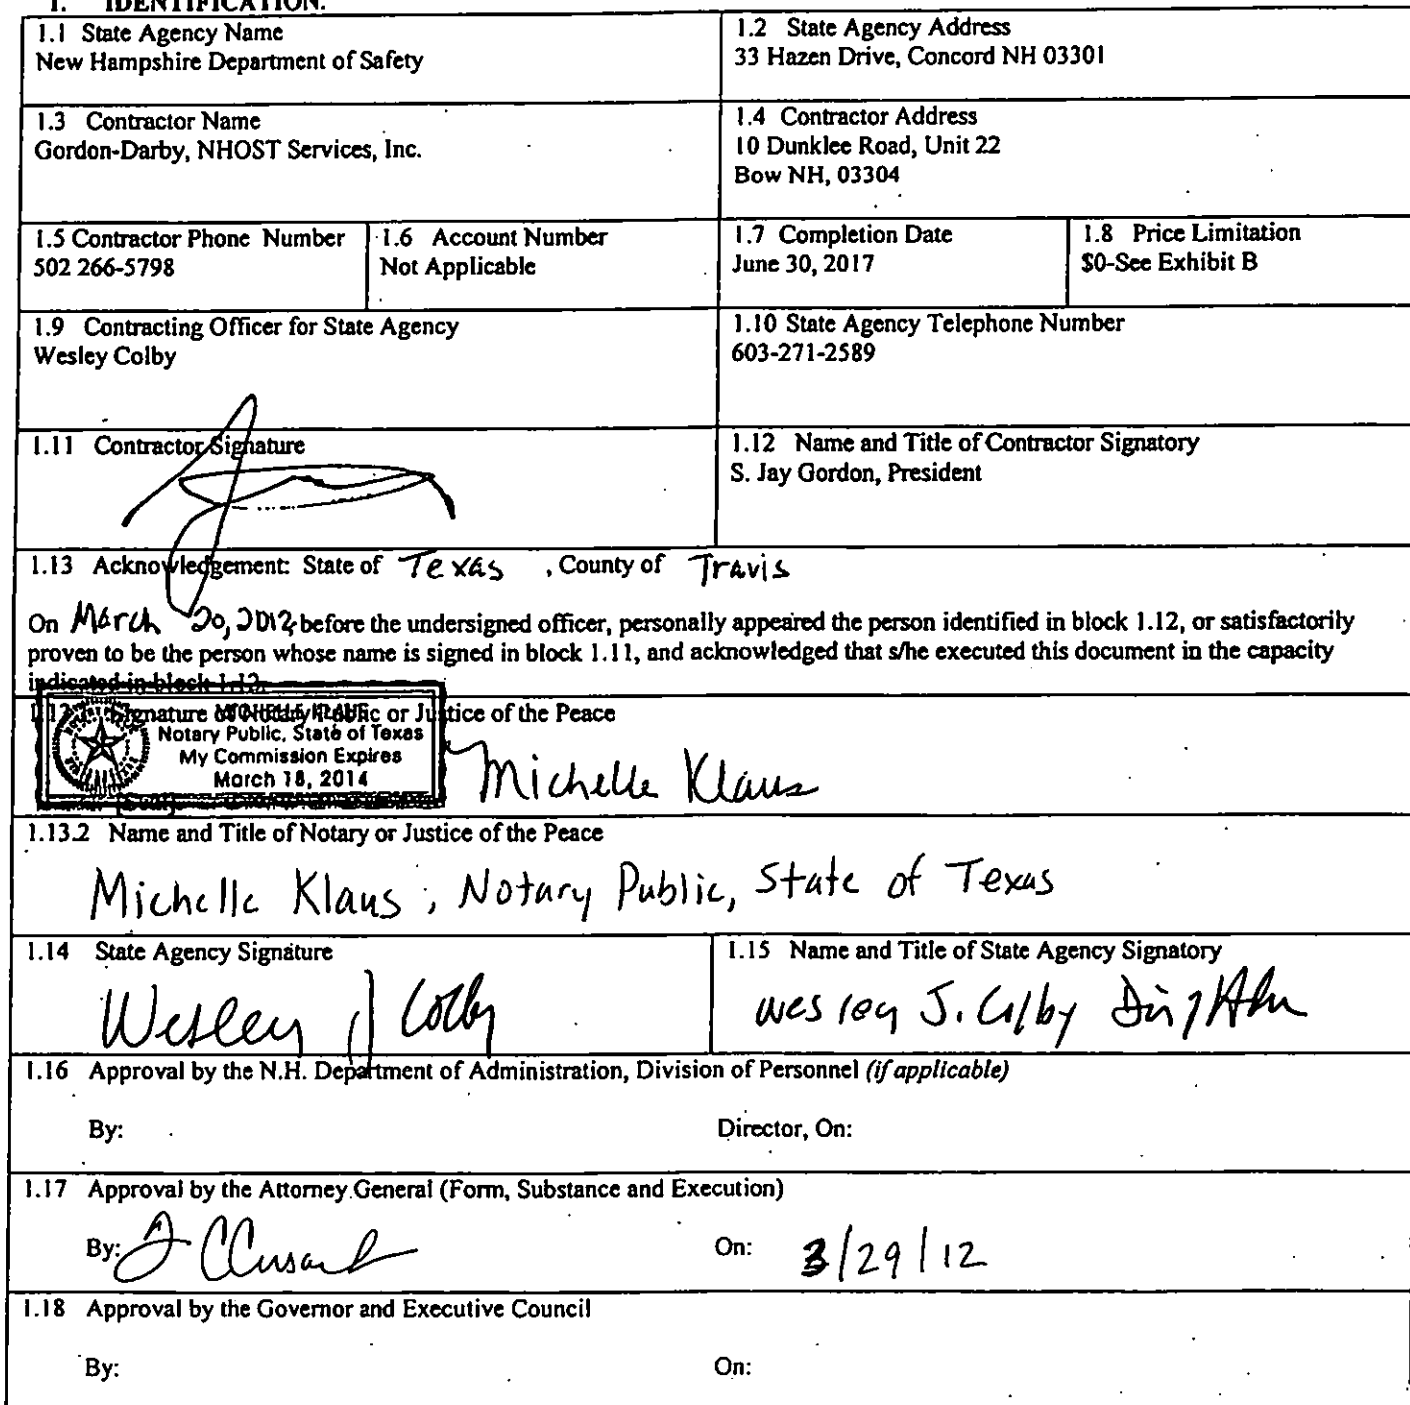 1. IDENTIFICATION.
1.1 State Agency Name
New Hampshire Department of Safety
1.2 State Agency Address
33 Hazen Drive, Concord NH 03301
1.3 Contractor Name
Gordon-Darby, NHOST Services, Inc.
1.4 Contractor Address
10 Dunklee Road, Unit 22
Bow NH, 03304
1.5 Contractor Phone Number
502 266-5798
1.6 Account Number
Not Applicable
1.7 Completion Date
June 30, 2017
1.8 Price Limitation
$0-See Exhibit B
1.9 Contracting Officer for State Agency
Wesley Colby
1.10 State Agency Telephone Number
603-271-2589
1.11 Contractor Signature
1.12 Name and Title of Contractor Signatory
S. Jay Gordon, President
1.13 Acknowledgement: State of Texas , County of Travis
On March 20, 2012 before the undersigned officer, personally appeared the person identified in block 1.12, or satisfactorily
proven to be the person whose name is signed in block 1.11, and acknowledged that s/he executed this document in the capacity
indicated in block 1.12.
Signature of Notary Public or Justice of the Peace
MICHELLE KLAUS
Notary Public, State of Texas
My Commission Expires
March 18, 2014
Michelle Klaus
1.13.2 Name and Title of Notary or Justice of the Peace
Michelle Klaus, Notary Public, State of Texas
1.14 State Agency Signature
Wesley J Colby
1.15 Name and Title of State Agency Signatory
Wesley J. Colby
1.16 Approval by the N.H. Department of Administration, Division of Personnel (if applicable)
By: Director, On:
1.17 Approval by the Attorney General (Form, Substance and Execution)
By: On: 3/29/12
1.18 Approval by the Governor and Executive Council
By: On: